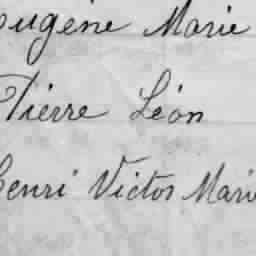 Eugène Marie
Pierre Léon
Henri Victor Marie